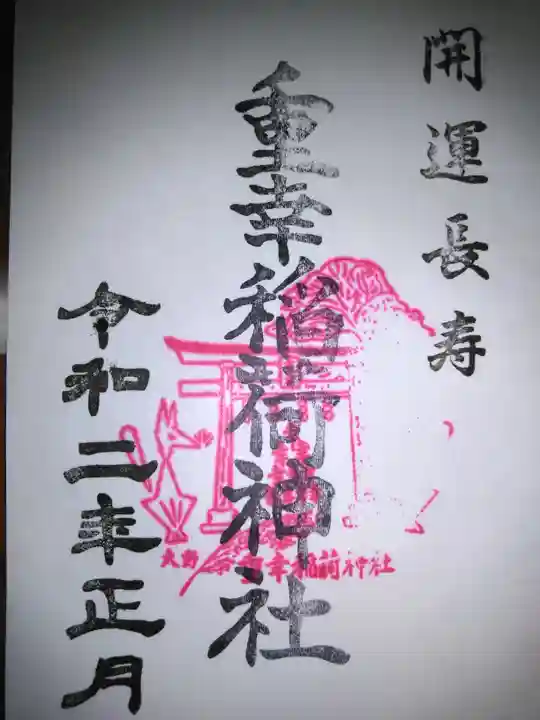 開運長寿
重幸稲荷神社
幸稲荷神社
令和二年正月